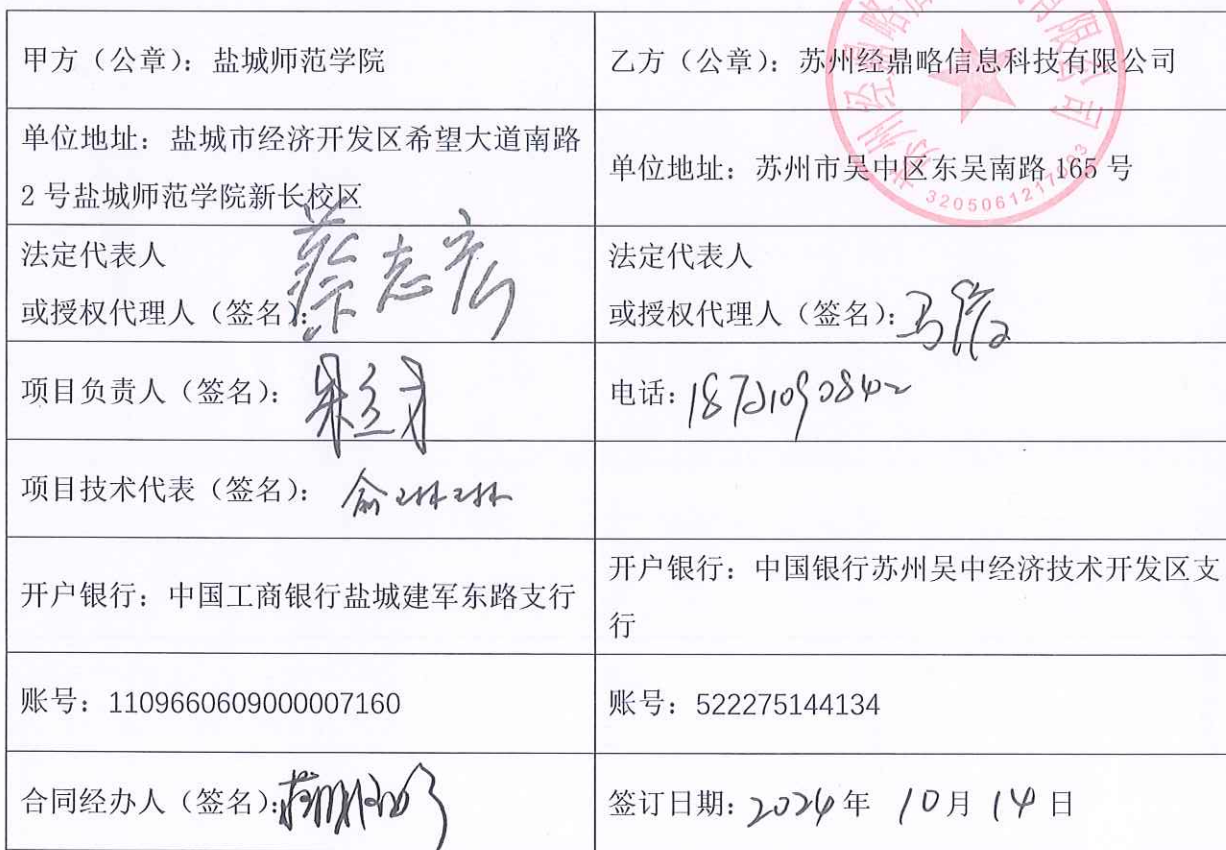 甲方（公章）：盐城师范学院
乙方（公章）：苏州经鼎略信息科技有限公司
单位地址：盐城市经济开发区希望大道南路
2 号盐城师范学院新长校区
单位地址：苏州市吴中区东吴南路 165 号
法定代表人
或授权代理人（签名）：蔡志宏
法定代表人
或授权代理人（签名）：马
项目负责人（签名）：朱立才
电话：18721090842
项目技术代表（签名）：俞琳琳
开户银行：中国工商银行盐城建军东路支行
开户银行：中国银行苏州吴中经济技术开发区支
行
账号：1109660609000007160
账号：522275144134
合同经办人（签名）：
签订日期：2024年 10月 14日